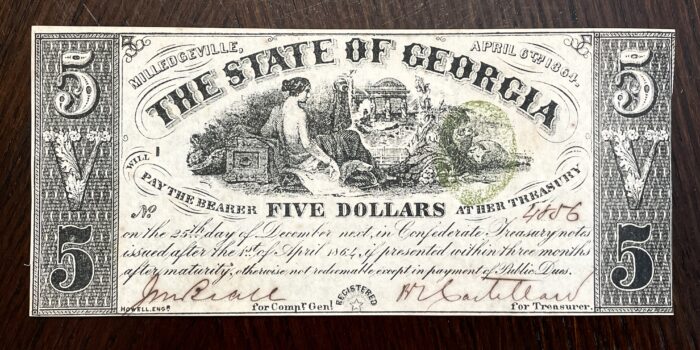 MILLEDGEVILLE, APRIL 6TH 1864.
THE STATE OF GEORGIA
5 5
V V
WILL
PAY THE BEARER FIVE DOLLARS AT HER TREASURY
No 4886
on the 25th day of December next, in Confederate Treasury notes
issued after the 1st of April 1864, if presented within three months
after maturity, otherwise not redeemable except in payment of Public Dues.
5 5
for Compt Genl REGISTERED for Treasurer.
HOWELL, ENGR